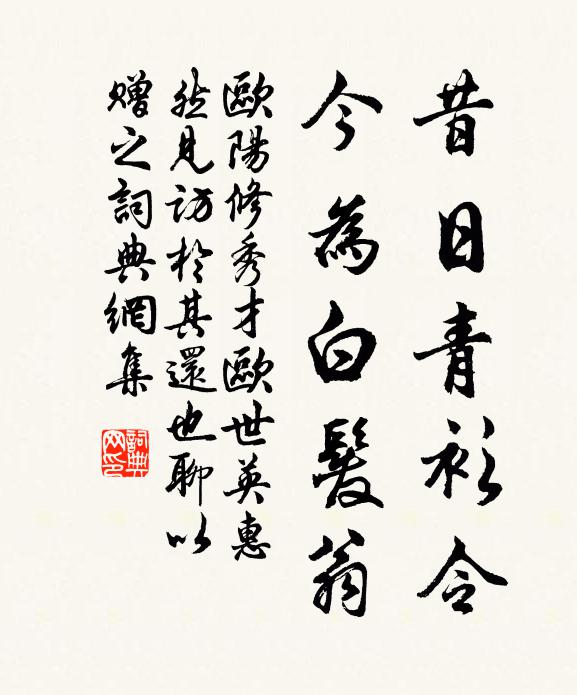 昔日青衫令
今為白髮翁
歐陽修秀才歐世英惠
然見訪於其還也聊以
贈之詞典網集
詞典网印